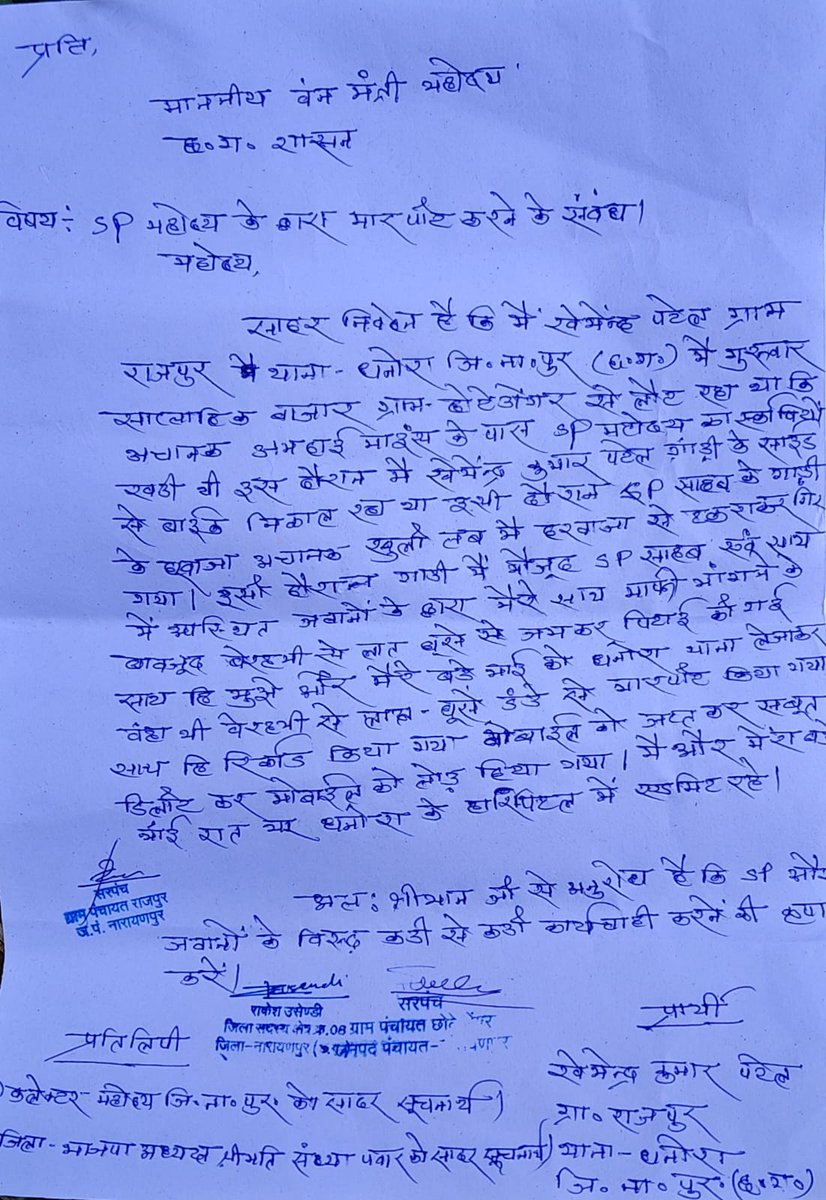 प्रति,
माननीय वन मंत्री महोदय
छ.ग. शासन
विषय: SP महोदय के द्वारा मारपीट करने के संबंध।
महोदय,
सादर निवेदन है कि मैं खेमेन्द्र पटेल ग्राम
राजपुर थाना-धनोरा जि.ना.पुर (छ.ग.) मैं गुरुवार
साप्ताहिक बाजार ग्राम-छोटेडोंगर से लौट रहा था कि
अचानक अमदाई माइंस के पास SP महोदय का स्कार्पियों
खडी थी इस दौरान मैं खेमेन्द्र कुमार पटेल गाड़ी के साइड
से बाईक निकाल रहा था इसी दौरान SP साहब के गाड़ी
के दरवाजा अचानक खुली तब मैं दरवाजा से टकराकर गिर
गया। इसी दौरान गाडी में मौजूद SP साहब एवं साथ
में उपस्थित जवानों के द्वारा मेरे साथ माफी मांगने के
बावजूद बेरहमी से लात घूसे से जमकर पिटाई की गई
साथ हि मुझे और मेरे बडे भाई को धनोरा थाना लेजाकर
वंहा भी बेरहमी से लात-घूसे डंडे से मारपीट किया गया
साथ हि रिकॉर्ड किया गया मोबाईल को जप्त कर सबूत
डिलीट कर मोबाईल को तोड़ दिया गया। मैं और मेरा बडे
भाई रात भर धनोरा के हास्पिटल में एडमिट रहे।
अतः श्रीमान जी से अनुरोध है कि SP और
जवानों के विरुद्ध कडी से कडी कार्यवाही करने की कृपा
करें।
सरपंच
ग्राम पंचायत राजपुर
ज.पं. नारायणपुर
राकेश उसेण्डी
जिला सदस्य क्षेत्र क्र.08
जिला-नारायणपुर
सरपंच
ग्राम पंचायत छोटे
जनपद पंचायत-
प्रार्थी
खेमेन्द्र कुमार पटेल
ग्रा. राजपुर
थाना-धनोरा
जि. ना. पुर. (छ.ग.)
प्रतिलिपी
कलेक्टर महोदय जि.ना.पुर. को सादर सूचनार्थ)
जिला-भाजपा अध्यक्ष श्रीमति संध्या पवार को सादर सूचनार्थ)